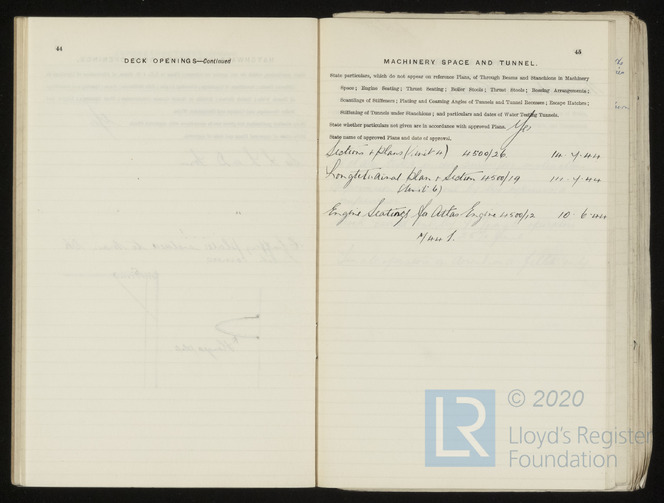 44
DECK OPENINGS—Continued
45
MACHINERY SPACE AND TUNNEL.
State particulars, which do not appear on reference Plans, of Through Beams and Stanchions in Machinery
Space; Engine Seating; Thrust Seating; Boiler Stools; Thrust Stools; Bossing Arrangements;
Scantlings of Stiffeners; Plating and Coaming Angles of Tunnels and Tunnel Recesses; Escape Hatches;
Stiffening of Tunnels under Stanchions; and particulars and dates of Water Testing Tunnels.
State whether particulars not given are in accordance with approved Plans. Yes
State name of approved Plans and date of approval.
Sections & Plans (Unit 4) 4500/26 14.7.44
Longitudinal Plan & Section 4500/19 7.44
(Unit 6)
Engine Seatings for Atlas Engine 4500/12 10.6.44
© 2020
LR
Lloyd's Register
Foundation